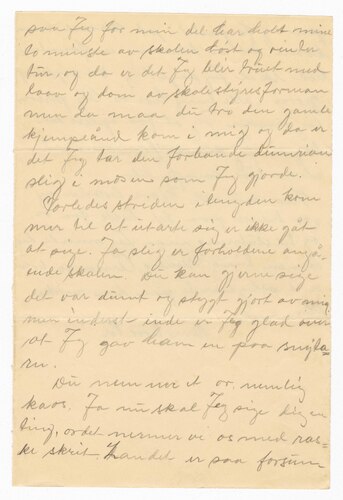 saa Jeg for min del har holt mine
to minste av skolen höst og vinter
tur, og da er det Jeg blir truet med
laav og dom av skolestyresforman
men da maa du tro den gamle
kjempeånd kom i mig og da er
det Jeg tar den forbande
slig i som Jeg gjorde.
Forledes striden i kom
mer til at utarte sig er ikke gåt
at sige. Ja slig er forholdene angå-
ende skolen. Du kan gjerne sige
det var dumt og stygt gjort av mig
men inderst inde er Jeg glad over
at Jeg gav ham en paa
Du et or, nemlig
kaos. Ja nu skal Jeg sige dig en
ting, ordet nermer vi os med ras-
ke skrit Landet er saa